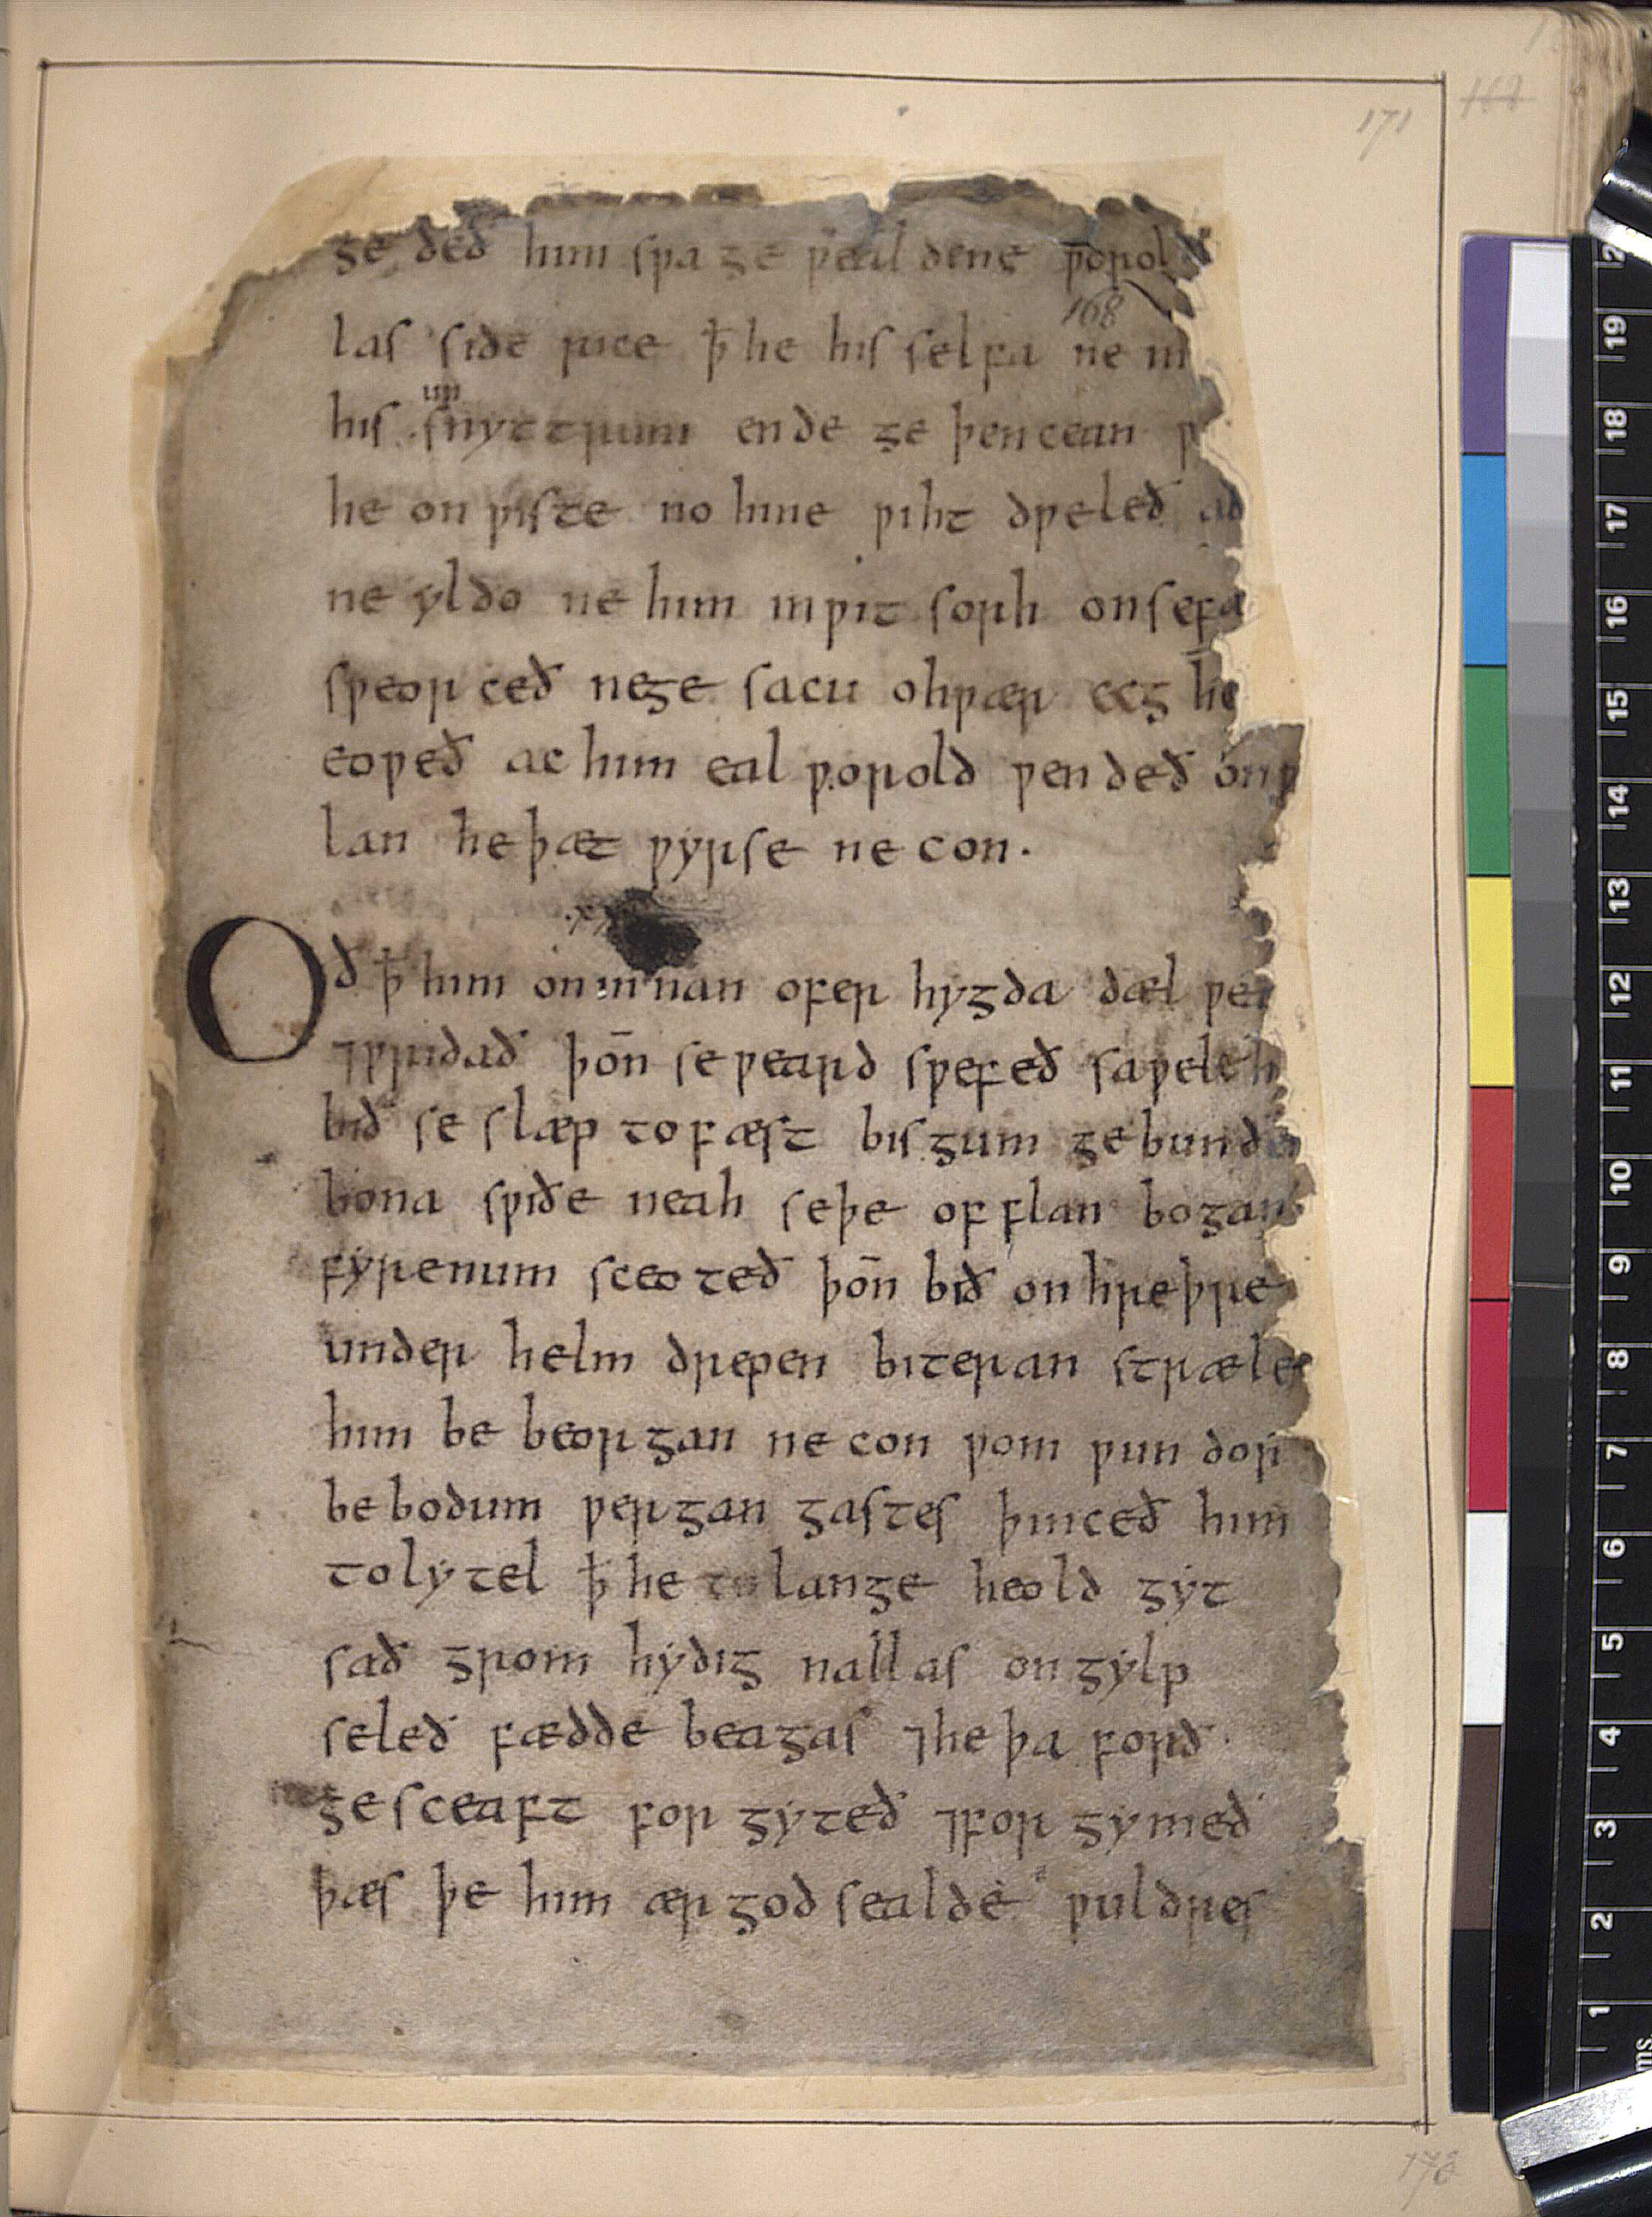 171
168
ge deð him swa ge weal dene worold
168
las side rice ꝥ he his selfa ne m
his un snyttrum ende ge þencean
he on wiste no hine wiht dweleð ad
ne yldo ne him inwit sorh onsefa
sweorceð nege sacu ohwær ecg he
eoweð ac him eal worold wendeð on w
lan he þæt wyrse ne con.
.xx
Oð ꝥ him on innan ofer hygda dæl wea
⁊wridað þoñ se weard swefeð sawele h
bið se slæp tofæst bisgum gebunde
bona swiðe neah seþe offlan bogan
fyrenum sceoteð þoñ bið on hreþre
under helm drepen biteran stræle
him be beorgan ne con wom wundor
be bodum wergan gastes þinceð him
tolytel ꝥ he to lange heold gyt
sað grom hydig nallas on gylp
seleð fædde beagas ⁊he þa forð
gesceaft for gyteð ⁊for gymeð
þæs þe him ær god sealde wuldres